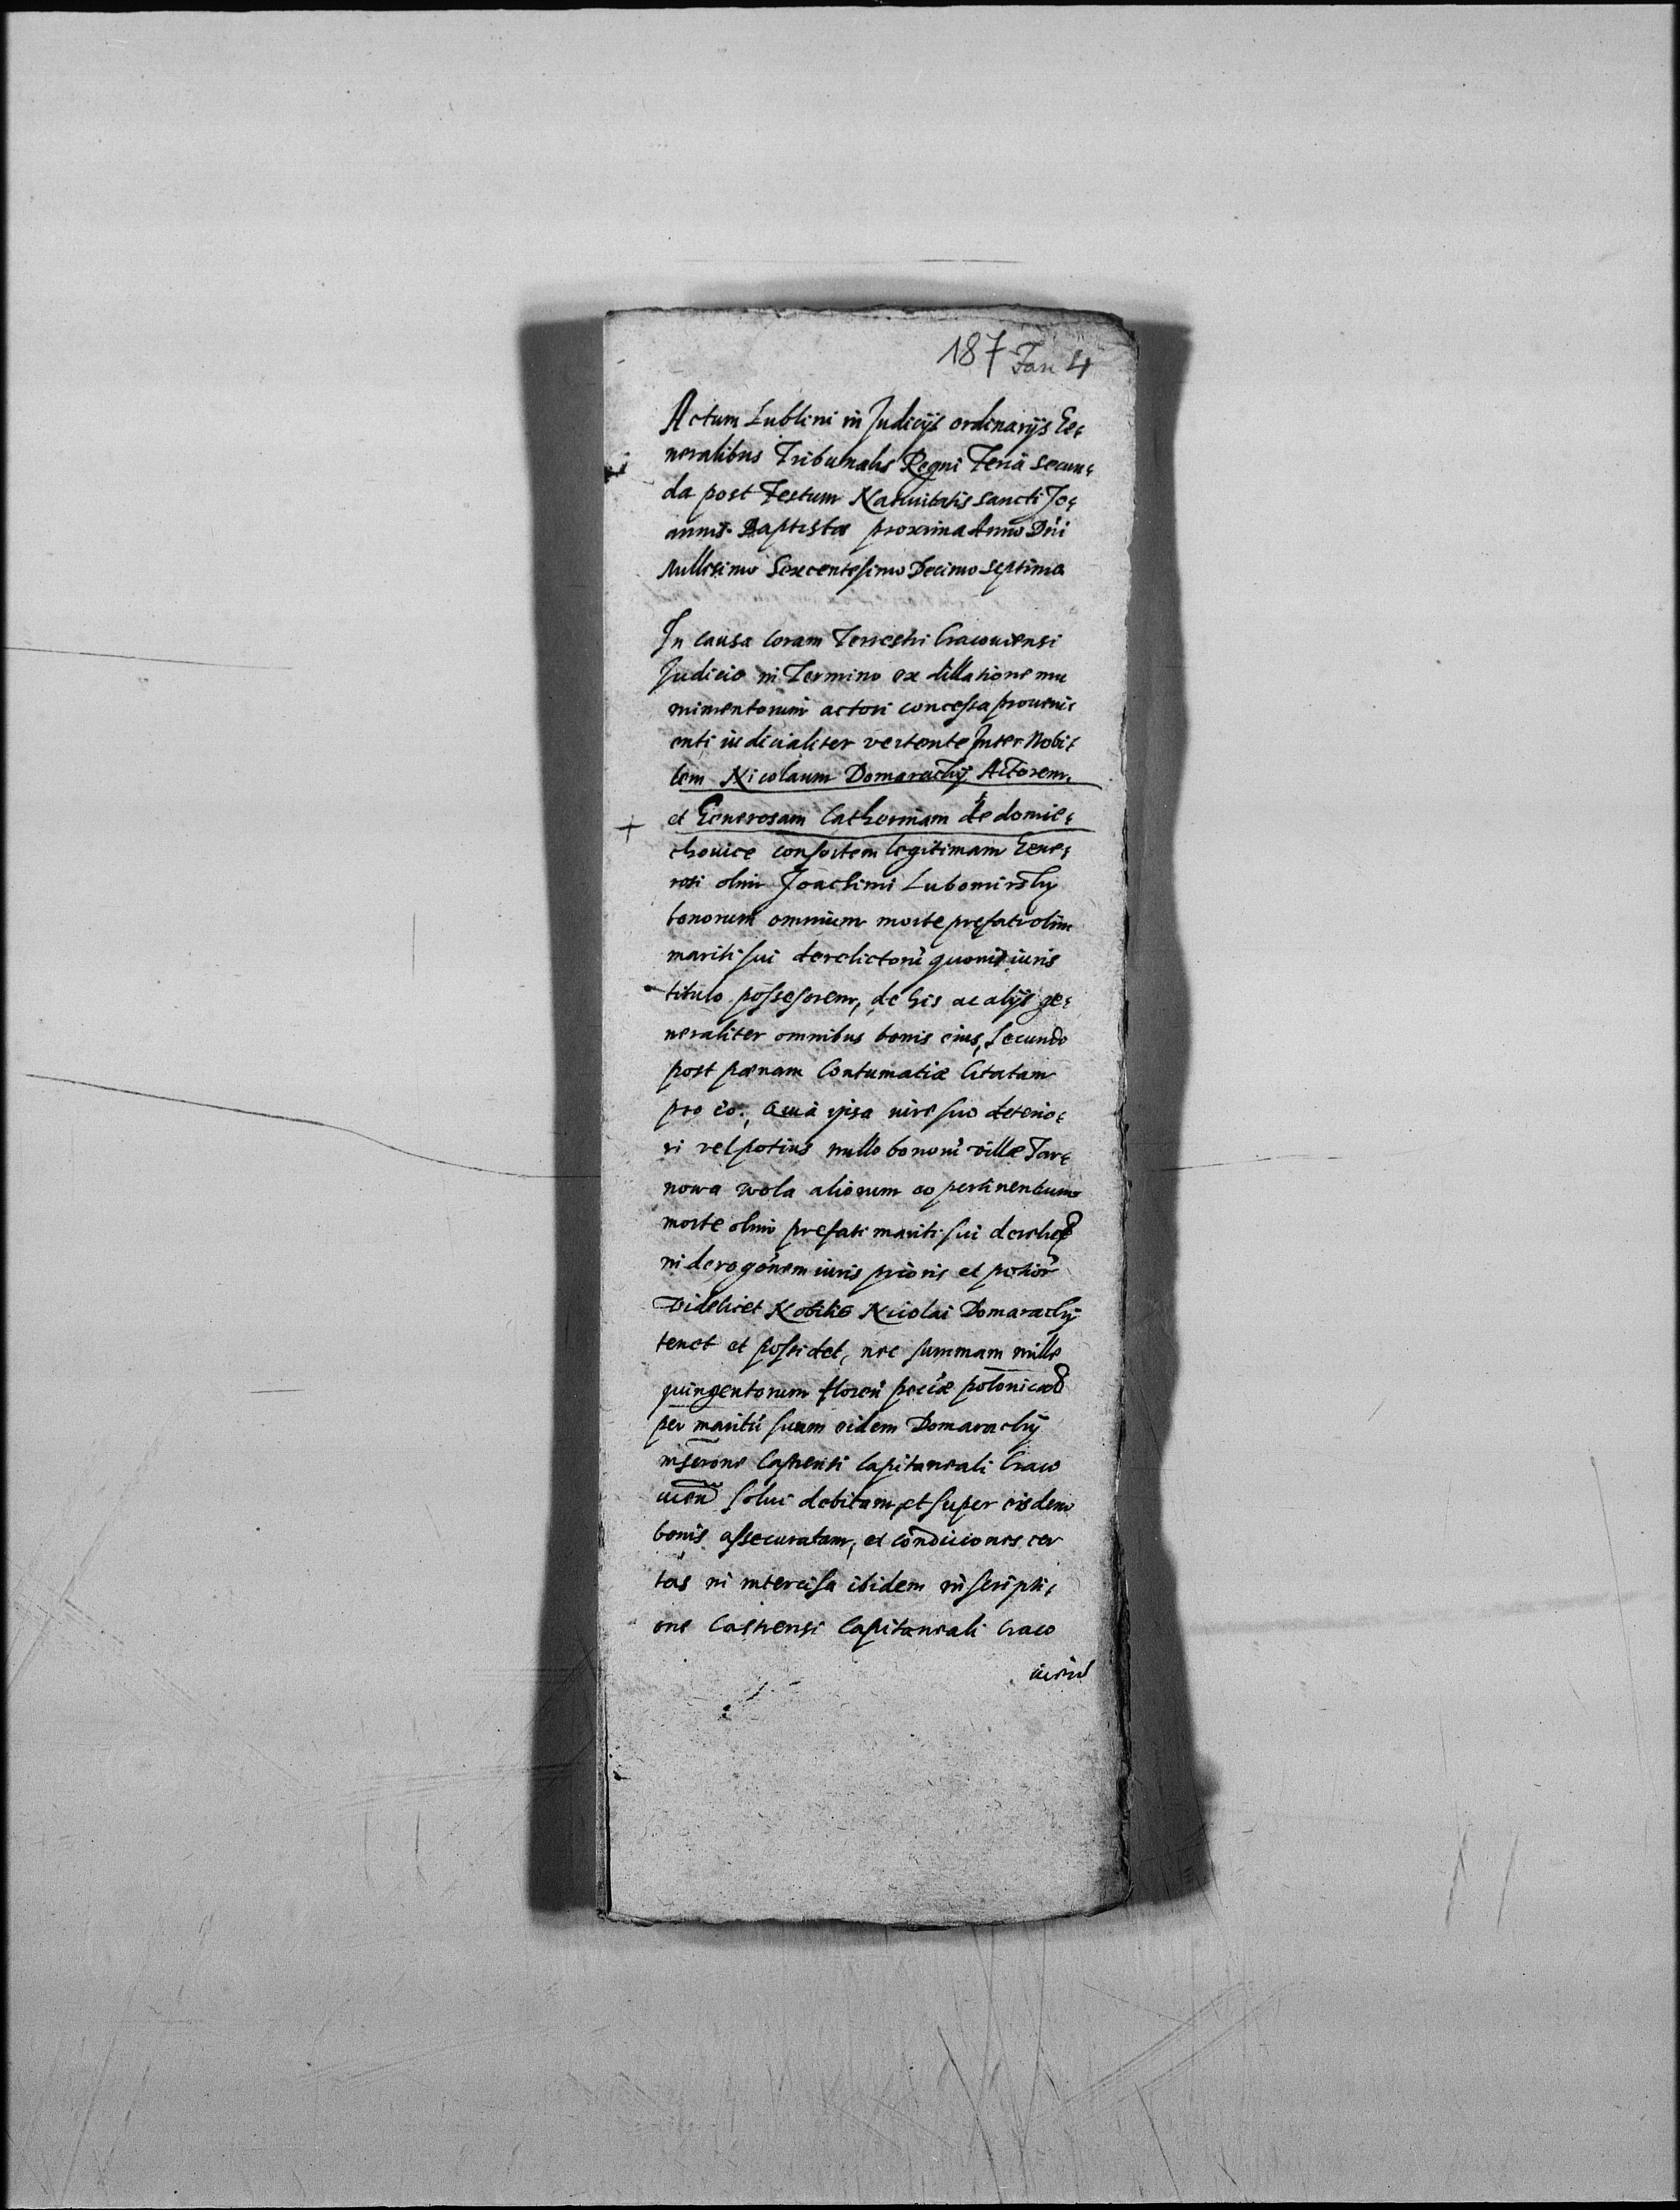 187 Fasc 4
Actum Lublini in Judicijs ordinarijs Ge:
neralibus Tribunalis Regni Feria Secun:
da post Festum Natiuitatis Sancti Jo:
annis Baptistæ proxima Anno Dni
Millesimo Sexcentesimo Decimo Septimo
In causa coram Terrestri Cracouiensi
Judicio in Termino ex dillatione mu
nimentorum actori concessa proueni:
enti iudicialiter vertente Inter Nobi:
lem Nicolaum Domarachij Actorem,
+ et Generosam Catherinam de domie:
chouice consortem legitimam Gene:
rosi olim Joachimi Lubomirsky
bonorum omnium morte præfati olim
mariti sui derelictorũ quouis iuris
titulo possessorem, de his ac alijs ge:
neraliter omnibus bonis eius, Secundo
post pœnam Contumatiæ Citatam
pro eo, Quia ipsa iure suo deterio:
ri vel potius nullo bonorũ villæ Tar:
nowa wola aliorum ac pertinentium
morte olim prefati mariti sui derelict
in derogõnem iuris prioris et potior
Videlicet Nobilis Nicolai Domarachij
tenet et possidet, nec summam mille
quingentorum floren pecũæ polonical
per maritũ suum eidem Domarachij
inscrõne Castrensi Capitaneali Craco
uien solui debitam, et super eisdem
bonis assecuratam, et condiciones cer
tas in intercisa ibidem inscripti:
one Castrensi Capitaneali Craco
uien